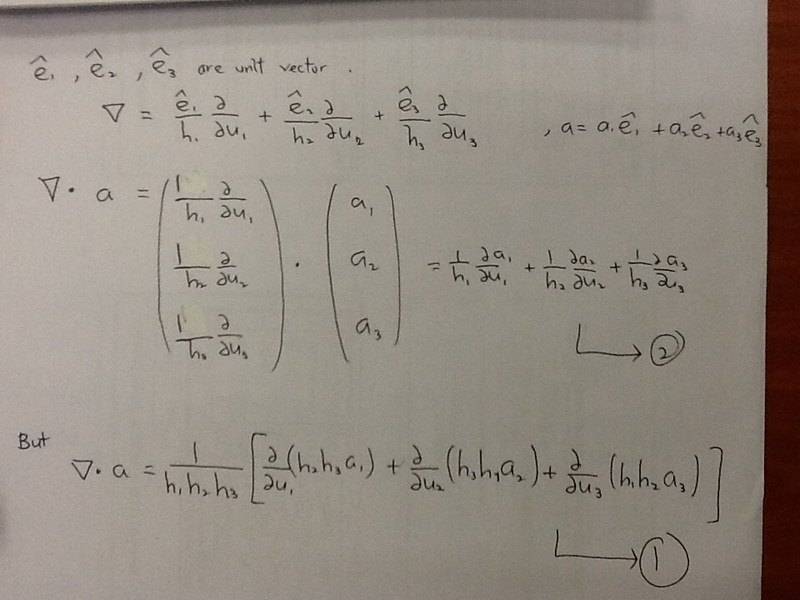 ê₁ , ê₂ , ê₃ are unit vector .
∇ = ê₁/h₁ ∂/∂u₁ + ê₂/h₂ ∂/∂u₂ + ê₃/h₃ ∂/∂u₃ , a = a₁ê₁ + a₂ê₂ + a₃ê₃
∇ · a = ( 1/h₁ ∂/∂u₁ 1/h₂ ∂/∂u₂ 1/h₃ ∂/∂u₃ ) · ( a₁ a₂ a₃ ) = 1/h₁ ∂a₁/∂u₁ + 1/h₂ ∂a₂/∂u₂ + 1/h₃ ∂a₃/∂u₃
→ ②
But
∇ · a = 1/(h₁h₂h₃) [ ∂/∂u₁ (h₂h₃a₁) + ∂/∂u₂ (h₃h₁a₂) + ∂/∂u₃ (h₁h₂a₃) ]
→ ①